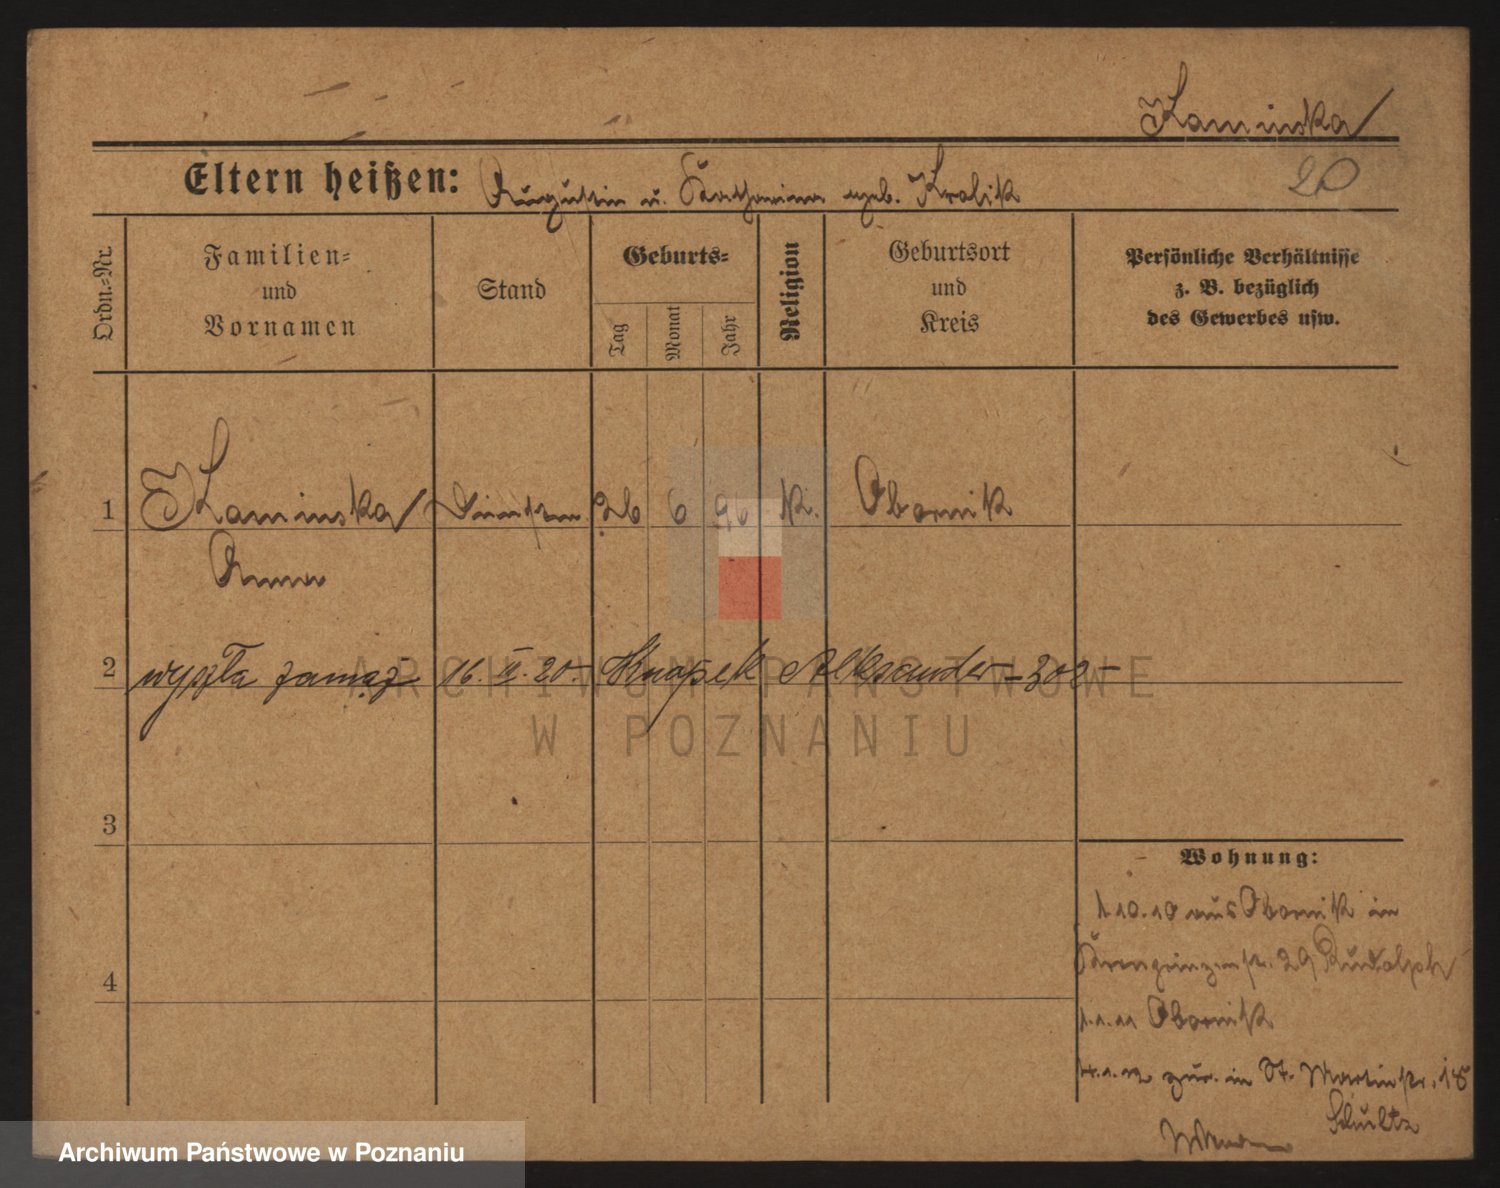 Kaminska
Eltern heißen: Augustin u. Katharina geb. Kralik
20
Ordn.-Nr.
Familien-
und
Vornamen
Stand
Geburts-
Tag
Monat
Jahr
Religion
Geburtsort
und
Kreis
Persönliche Verhältnisse
z. B. bezüglich
des Gewerbes usw.
1 Kaminska 26 6 96 K. Obornik
Anna
2 wyszła zamąż 16. II. 20. Knapek Aleksander - 302 -
3
4
Wohnung:
1.10.10 aus Obornik in
Kronprinzenstr. 29 Rudolph
1.1.11 Obornik
4.1.12 zur. in St. Martinstr. 18
Schultz
ARCHIWUM PAŃSTWOWE
W POZNANIU
Archiwum Państwowe w Poznaniu